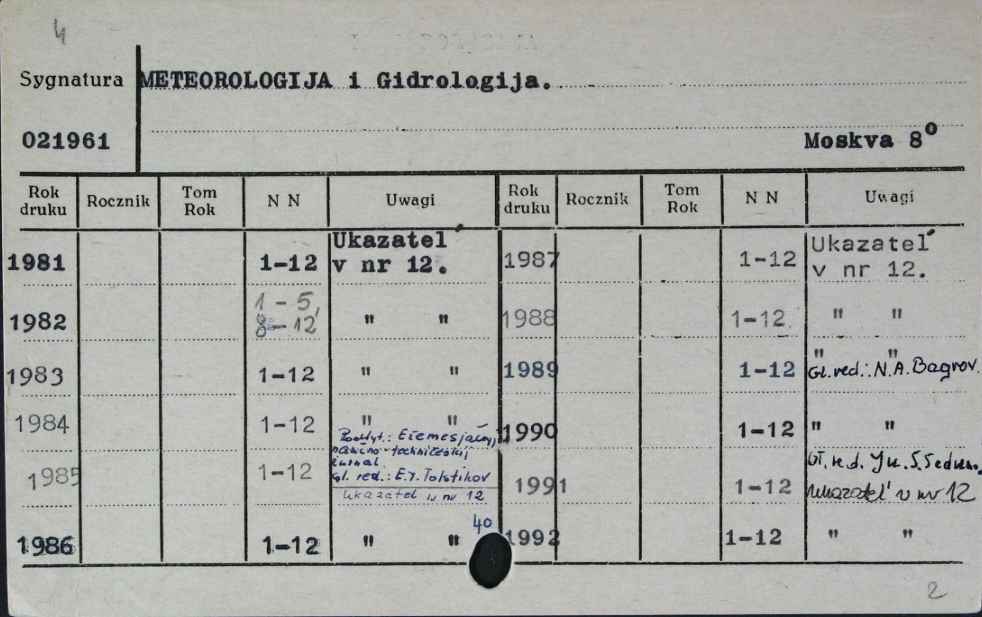 4
Sygnatura METEOROLOGIJA i Gidrologija.
021961 Moskva 8º
Rok druku Rocznik Tom Rok N N Uwagi Rok druku Rocznik Tom Rok N N Uwagi
1981 1-12 Ukazatel' v nr 12.
1982 1-5, 8-12 " "
1983 1-12 " "
1984 1-12 " "
1985 1-12 Podtyt.: Ežemesjačnyj naučno-techničeskij žurnal.
Gl. red.: E.I. Tolstikov
Ukazatel v nr 12
1986 1-12 " "
40
1987 1-12 Ukazatel' v nr 12.
1988 1-12 " "
1989 1-12 " "
Gl. red.: N.A. Bagrov.
1990 1-12 " "
1991 1-12 Gł. red. Ju. S. Sedun.
Ukazatel' v nr 12
1992 1-12 " "
2